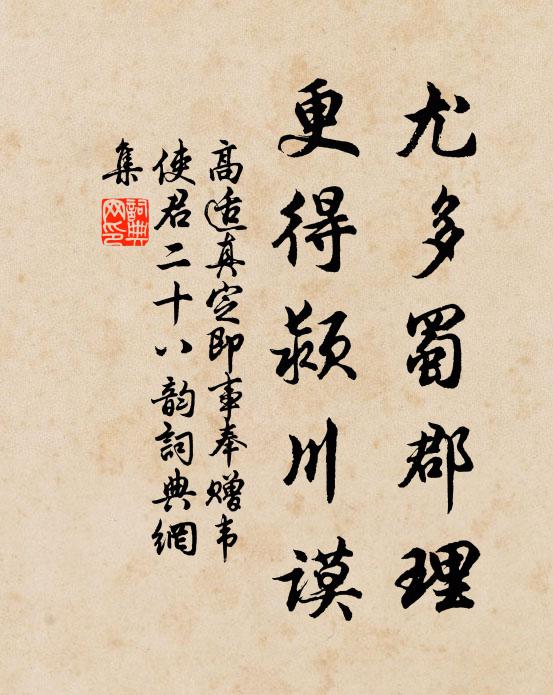 尤多蜀郡理
更得颍川谟
高适真定即事奉赠韦
使君二十八韵詞典網
集
詞典網印